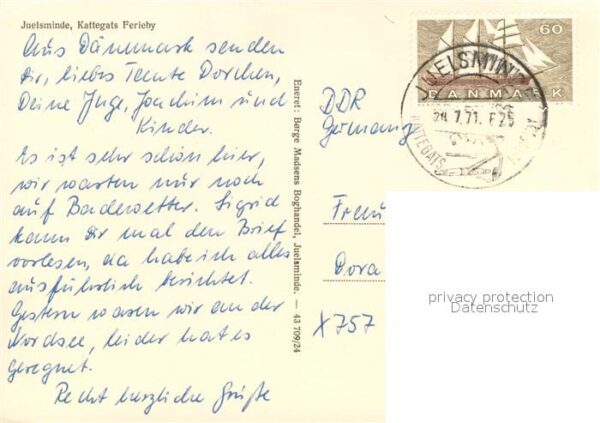 Juelsminde, Kattegats Ferieby
Aus Dänemark senden
Dir, liebes Tante Dorchen,
Deine Inge, Joachim und
Kinder.
Es ist sehr schön hier,
wir warten nur noch
auf Badewetter. Sigrid
kann Dir mal den Brief
vorlesen, da habe ich alles
ausführlich berichtet.
Gestern waren wir an der
Nordsee, leider hat es
geregnet.
Recht herzliche Grüße
Eneret: Børge Madsens Boghandel, Juelsminde. — 43 709/24
60
DANMARK
JUELSMINDE
7.71. F25
KATTEGATS
DDR
Germany
Frau
Dora
X757
privacy protection
Datenschutz